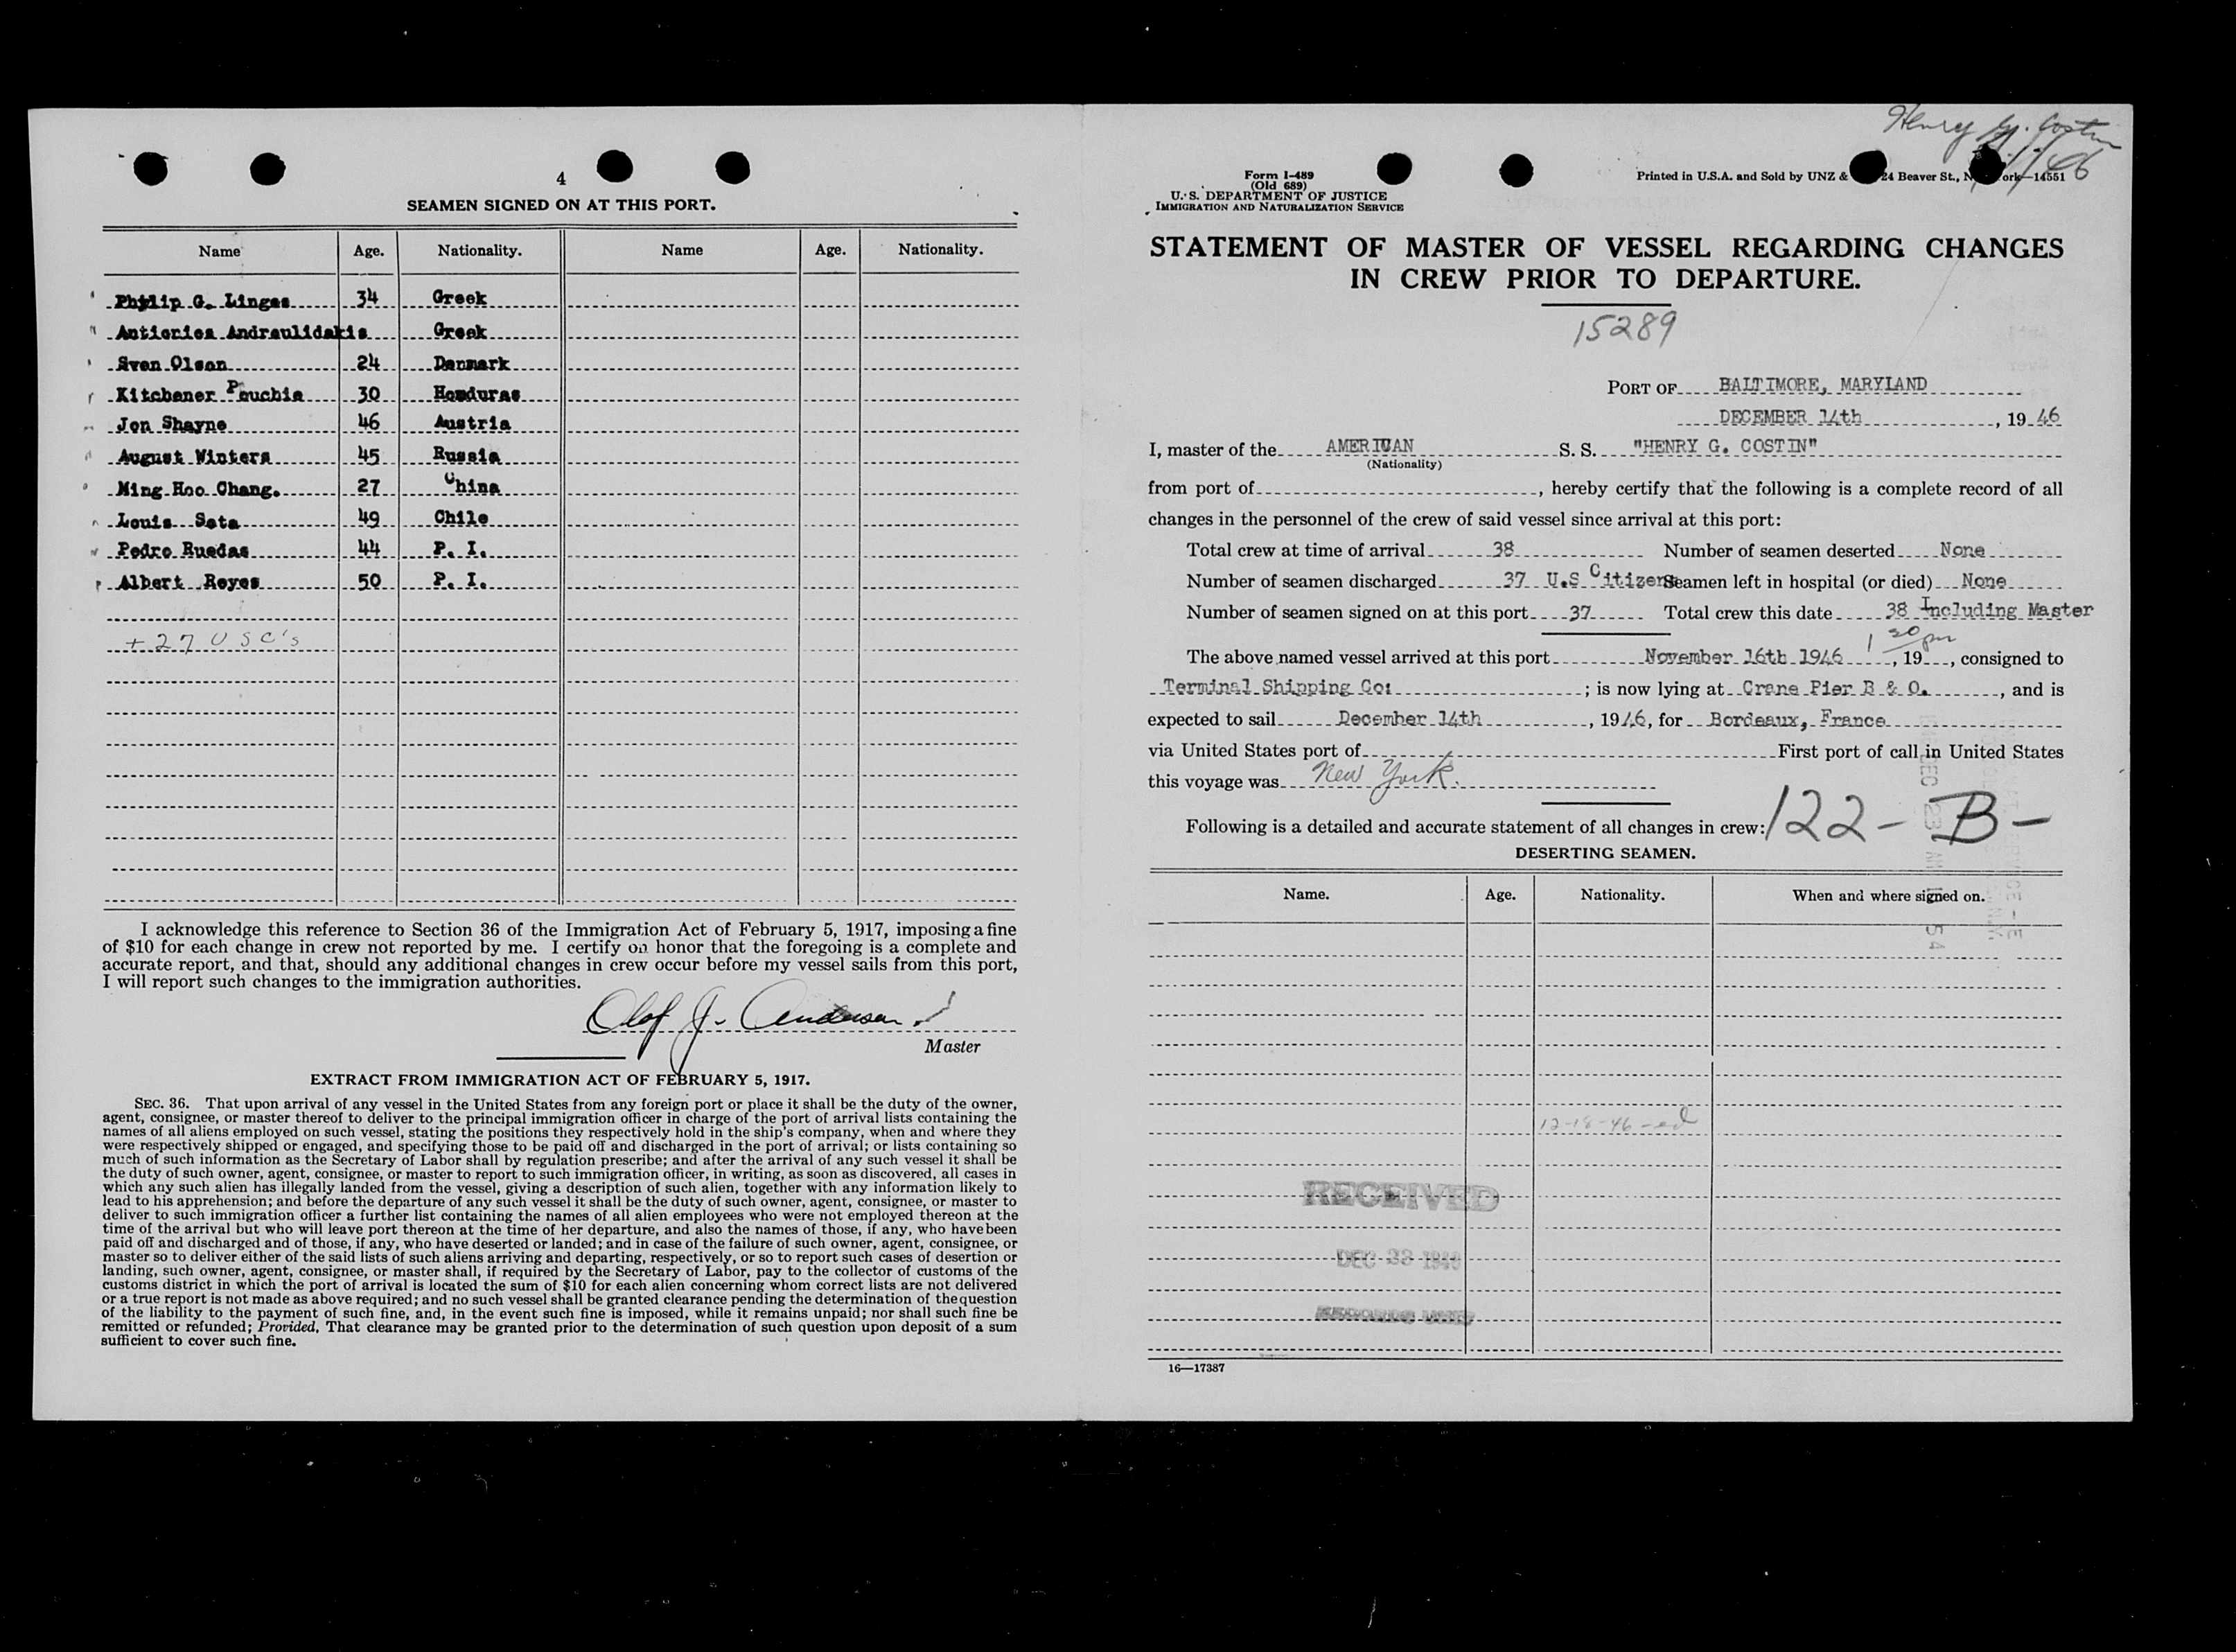 4
SEAMEN SIGNED ON AT THIS PORT.
Name Age. Nationality. Name Age. Nationality.
Philip G. Lingas 34 Greek
Andraulidakis Greek
Sven Olson 24 Denmark
Kitchener Pouchie 30 Honduras
Jon Shayne 46 Austria
August Winters 45 Russia
Ming Hoo Chang. 27 China
Louis Sota 49 Chile
Pedro Ruedas 44 P. I.
Albert Reyes 50 P. I.
+ 27 USC's
I acknowledge this reference to Section 36 of the Immigration Act of February 5, 1917, imposing a fine
of $10 for each change in crew not reported by me. I certify on honor that the foregoing is a complete and
accurate report, and that, should any additional changes in crew occur before my vessel sails from this port,
I will report such changes to the immigration authorities.
Olof J. Anderson
Master
EXTRACT FROM IMMIGRATION ACT OF FEBRUARY 5, 1917.
SEC. 36. That upon arrival of any vessel in the United States from any foreign port or place it shall be the duty of the owner,
agent, consignee, or master thereof to deliver to the principal immigration officer in charge of the port of arrival lists containing the
names of all aliens employed on such vessel, stating the positions they respectively hold in the ship's company, when and where they
were respectively shipped or engaged, and specifying those to be paid off and discharged in the port of arrival; or lists containing so
much of such information as the Secretary of Labor shall by regulation prescribe; and after the arrival of any such vessel it shall be
the duty of such owner, agent, consignee, or master to report to such immigration officer, in writing, as soon as discovered, all cases in
which any such alien has illegally landed from the vessel, giving a description of such alien, together with any information likely to
lead to his apprehension; and before the departure of any such vessel it shall be the duty of such owner, agent, consignee, or master to
deliver to such immigration officer a further list containing the names of all alien employees who were not employed thereon at the
time of the arrival but who will leave port thereon at the time of her departure, and also the names of those, if any, who have been
paid off and discharged and of those, if any, who have deserted or landed; and in case of the failure of such owner, agent, consignee, or
master so to deliver either of the said lists of such aliens arriving and departing, respectively, or so to report such cases of desertion or
landing, such owner, agent, consignee, or master shall, if required by the Secretary of Labor, pay to the collector of customs of the
customs district in which the port of arrival is located the sum of $10 for each alien concerning whom correct lists are not delivered
or a true report is not made as above required; and no such vessel shall be granted clearance pending the determination of the question
of the liability to the payment of such fine, and, in the event such fine is imposed, while it remains unpaid; nor shall such fine be
remitted or refunded; Provided, That clearance may be granted prior to the determination of such question upon deposit of a sum
sufficient to cover such fine.
Henry G. Costin
Form I-489
(Old 689)
U. S. DEPARTMENT OF JUSTICE
IMMIGRATION AND NATURALIZATION SERVICE
Printed in U.S.A. and Sold by UNZ & 24 Beaver St., N ork—14551
STATEMENT OF MASTER OF VESSEL REGARDING CHANGES
IN CREW PRIOR TO DEPARTURE.
15289
PORT OF BALTIMORE, MARYLAND
DECEMBER 14th, 19 46
I, master of the AMERICAN S. S. "HENRY G. COSTIN"
(Nationality)
from port of , hereby certify that the following is a complete record of all
changes in the personnel of the crew of said vessel since arrival at this port:
Total crew at time of arrival 38 Number of seamen deserted None
Number of seamen discharged 37 U.S Citizens Seamen left in hospital (or died) None
Number of seamen signed on at this port 37 Total crew this date 38 Including Master
1 30 pm
The above named vessel arrived at this port November 16th 1946, 19 , consigned to
Terminal Shipping Co: ; is now lying at Crane Pier B & O. , and is
expected to sail December 14th , 1946, for Bordeaux, France
via United States port of First port of call in United States
this voyage was New York.
Following is a detailed and accurate statement of all changes in crew: 122-B-
DESERTING SEAMEN.
Name. Age. Nationality. When and where signed on.
12-18-46-ed
RECEIVED
DEC 23 1946
RECORDS UNIT
16—17387